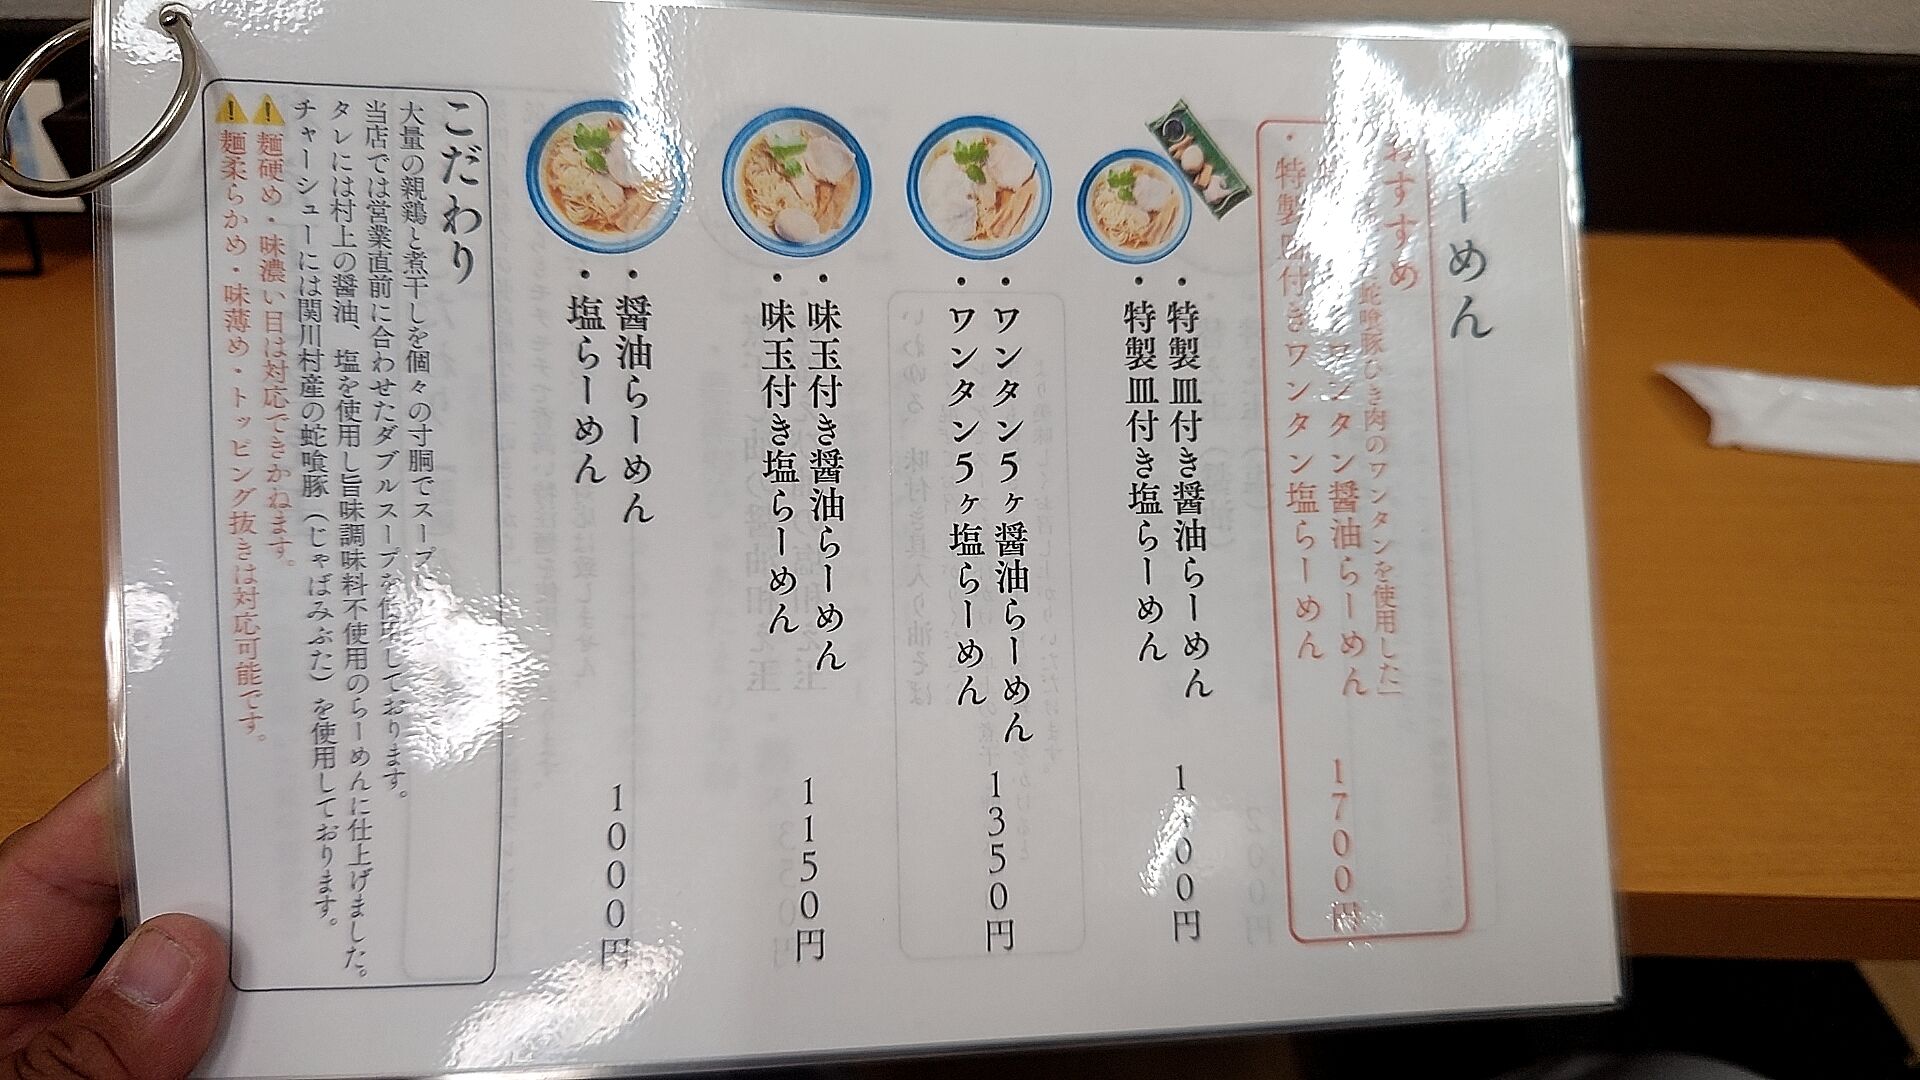 ーめん
おすすめ
蛇喰豚ひき肉のワンタンを使用した」
ワンタン醤油らーめん
・特製皿付きワンタン塩らーめん
1700円
・特製皿付き醤油らーめん
・特製皿付き塩らーめん
・ワンタン5ヶ醤油らーめん
・ワンタン5ヶ塩らーめん
1350円
・味玉付き醤油らーめん
・味玉付き塩らーめん
1150円
・醤油らーめん
・塩らーめん
1000円
こだわり
大量の親鶏と煮干しを個々の寸胴でスープに
当店では営業直前に合わせたダブルスープを使用しております。
タレには村上の醤油、塩を使用し旨味調味料不使用のらーめんに仕上げました。
チャーシューには関川村産の蛇喰豚(じゃばみぶた)を使用しております。
⚠麺硬め・味濃い目は対応できかねます。
⚠麺柔らかめ・味薄め・トッピング抜きは対応可能です。